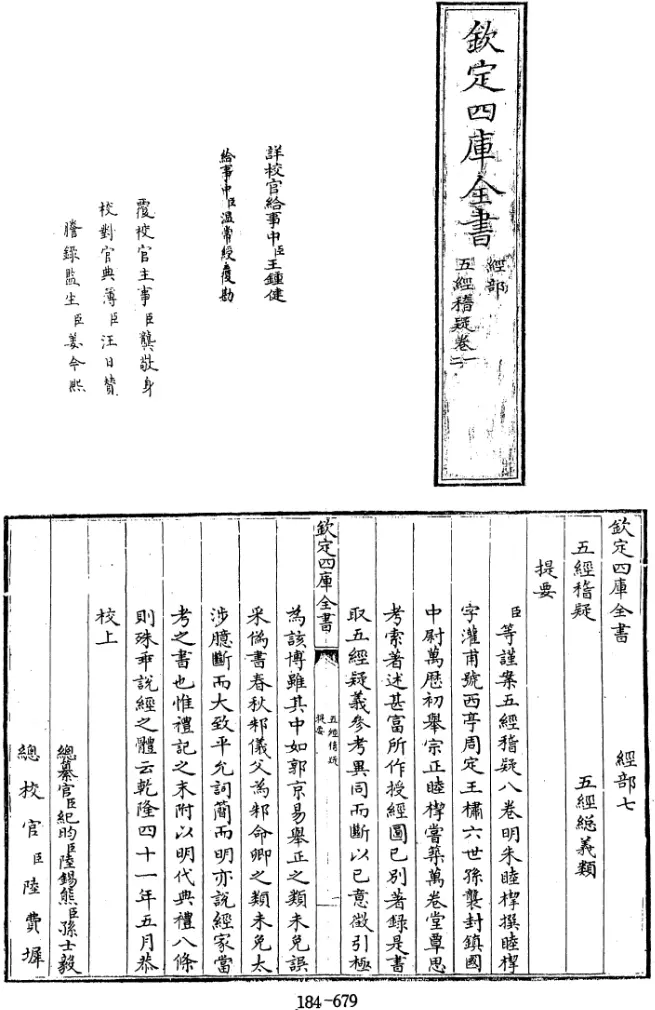 欽定四庫全書
經部
五經稽疑卷一
二
詳校官給事中臣王鍾健
給事中臣溫常綬覆勘
覆校官主事臣龔敬身
校對官典簿臣汪日贊
謄錄監生臣姜令熙
欽定四庫全書 經部七
五經稽疑 五經緫義類
提要
臣等謹案五經稽疑八卷明朱睦㮮撰睦㮮
字灌甫號西亭周定王橚六世孫襲封鎮國
中尉萬歷初舉宗正睦㮮嘗築萬卷堂覃思
考索著述甚富所作授經圖已別著錄是書
取五經疑義參考異同而斷以已意徵引極
欽定四庫全書
五經稽疑
提要
一
為該博雖其中如郭京易舉正之類未免誤
采偽書春秋邾儀父為邾命卿之類未免太
涉臆斷而大致平允詞簡而明亦說經家當
考之書也惟禮記之末附以明代典禮八條
則殊乖說經之體云乾隆四十一年五月恭
校上
總纂官臣紀昀臣陸錫熊臣孫士毅
總校官臣陸費墀
184-679